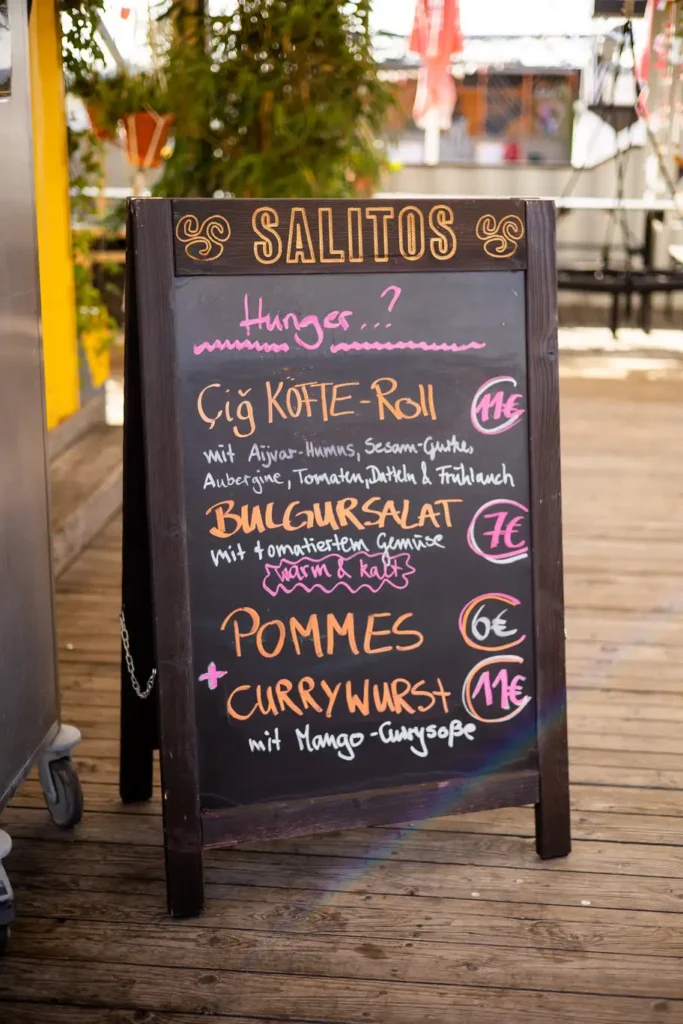 SALITOS
Hunger...?
Çiğ KÖFTE-Roll 11€
mit Aijvar-Humus, Sesam-Gurke,
Aubergine, Tomaten, Datteln & Frühlauch
BULGURSALAT 7€
mit tomatiertem Gemüse
warm & kalt
POMMES 6€
+
CURRYWURSt 11€
mit Mango-Currysoße